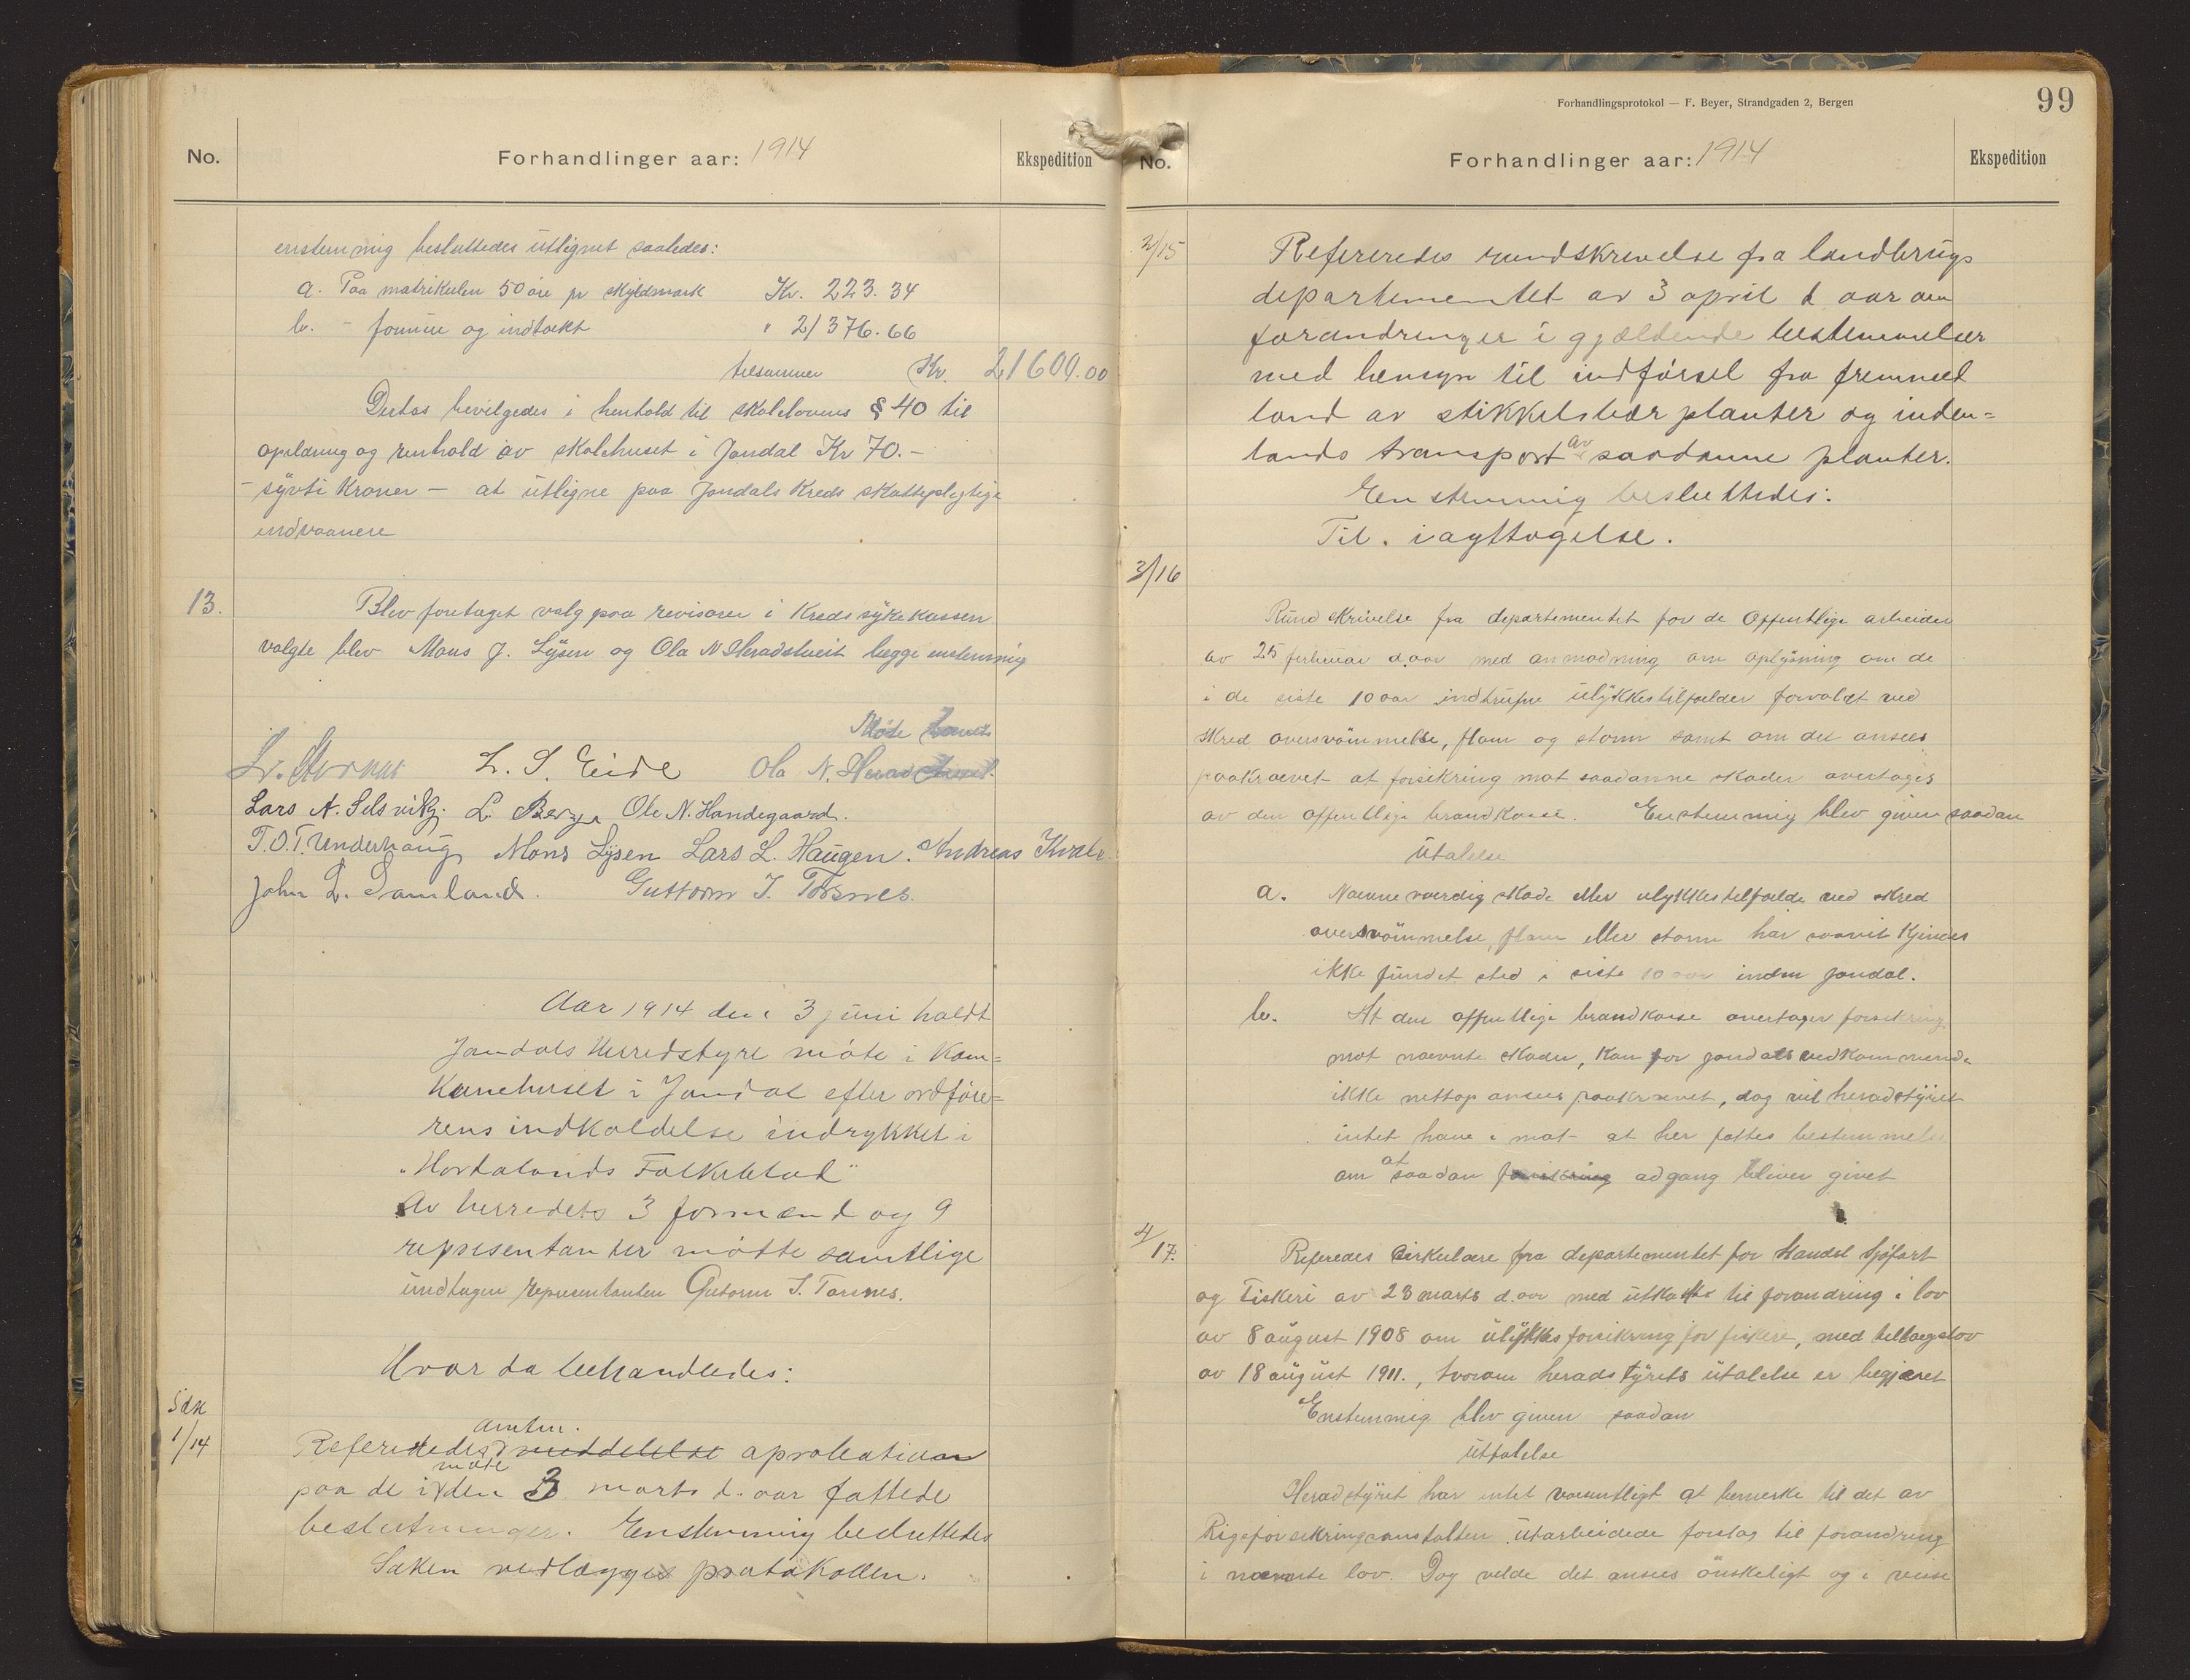 No.
Forhandlinger aar: 1914
Ekspedition
enstemmig besluttedes utlignet saaledes:
a. Paa matrikulen 50 øre pr skyldmark Kr. 223.34
b. - formue og indtækt " 21376.66
tilsammen Kr. 21600.00
Dertas bevilgedes i henhold til skolelovens § 40 til
opildning og renhold av skolehuset i Jondal Kr 70.-
- sytti Kroner - at utligne paa Jondals Kreds skattepligtige
indvaanere
13.
Blev foretaget valg paa revisorer i Kredssykekassen
valgte blev Mons J. Lysen og Ola N Heradstveit begge enstemmig
Møte hævet
L. S. Eide Ola N. Heradstveit.
Lars N. Selsvik. L. Berge Ole N. Handegaard.
T.O.T. Underhaug Mons Lysen Lars L. Haugen. Andreas Kvale.
John L. Samland. Guttorm J. Torsnes.
Aar 1914 den 3 juni holdt
Jondals Herredstyre møte i Kom=
munehuset i Jondal efter ordføre=
rens indkaldelse indrykket i
"Hordalands Folkeblad"
Av herredets 3 formænd og 9
representanter møtte samtlige
undtagen representanten Gutorm J. Torsnes.
Hvor da behandledes:
Sak
1/14
Refereredes amtm. meddelelse aprobation
paa de i møte den 3 marts d. aar fattede
beslutninger. Enstemmig besluttedes
Saken vedlægges protokollen.
Forhandlingsprotokol — F. Beyer, Strandgaden 2, Bergen
99
No.
Forhandlinger aar: 1914
Ekspedition
2/15
Refereredes rundskrivelse fra landbrugs
departementet av 3 april d aar om
forandringer i gjældende bestemmelser
med hensyn til indførsel fra fremmed
land av stikkelsbær planter og inden=
lands transport av saadanne planter.
Enstemmig besluttedes:
Til iagttagelse.
3/16
Rundskrivelse fra departementet for de Offentlige arbeider
av 25 februar d.aar med anmodning om oplysning om de
i de siste 10 aar indtrufne ulykkestilfælder forvoldt ved
skred oversvømmelse, flom og storm samt om det ansees
paakrævet at forsikring mot saadanne skader overtages
av den offentlige brandkasse. Enstemmig blev given saadan
Utalelse
a. Nævneværdig skade eller ulykkestilfælde ved skred
oversvømmelse, flom eller storm har saavit kjendes
ikke fundet sted i siste 10 aar inden Jondal.
b. At den offentlige brandkasse overtager forsikring
mot nævnte skader, kan for Jondals vedkommende
ikke nettop ansees paakrævet, dog vil heradstyret
intet have i mot at her fattes bestemmelse
om at saadan forsikring adgang bliver givet
4/17.
Referedes Cirkulære fra departementet for Handel Sjøfart
og Fiskeri av 23 marts d.aar med utkast til forandring i lov
av 8 august 1908 om ulykkesforsikring for fiskere, med tillægslov
av 18 august 1911., hvorom heradstyrets utalelse er begjæret
Enstemmig blev given saadan
uttalelse
Heradstyret har intet væsentligt at bemerke til det av
Rigsforsekringsanstalten utarbeidede forslag til forandring
i nævnte lov. Dog vilde det ansees ønskeligt og i visse